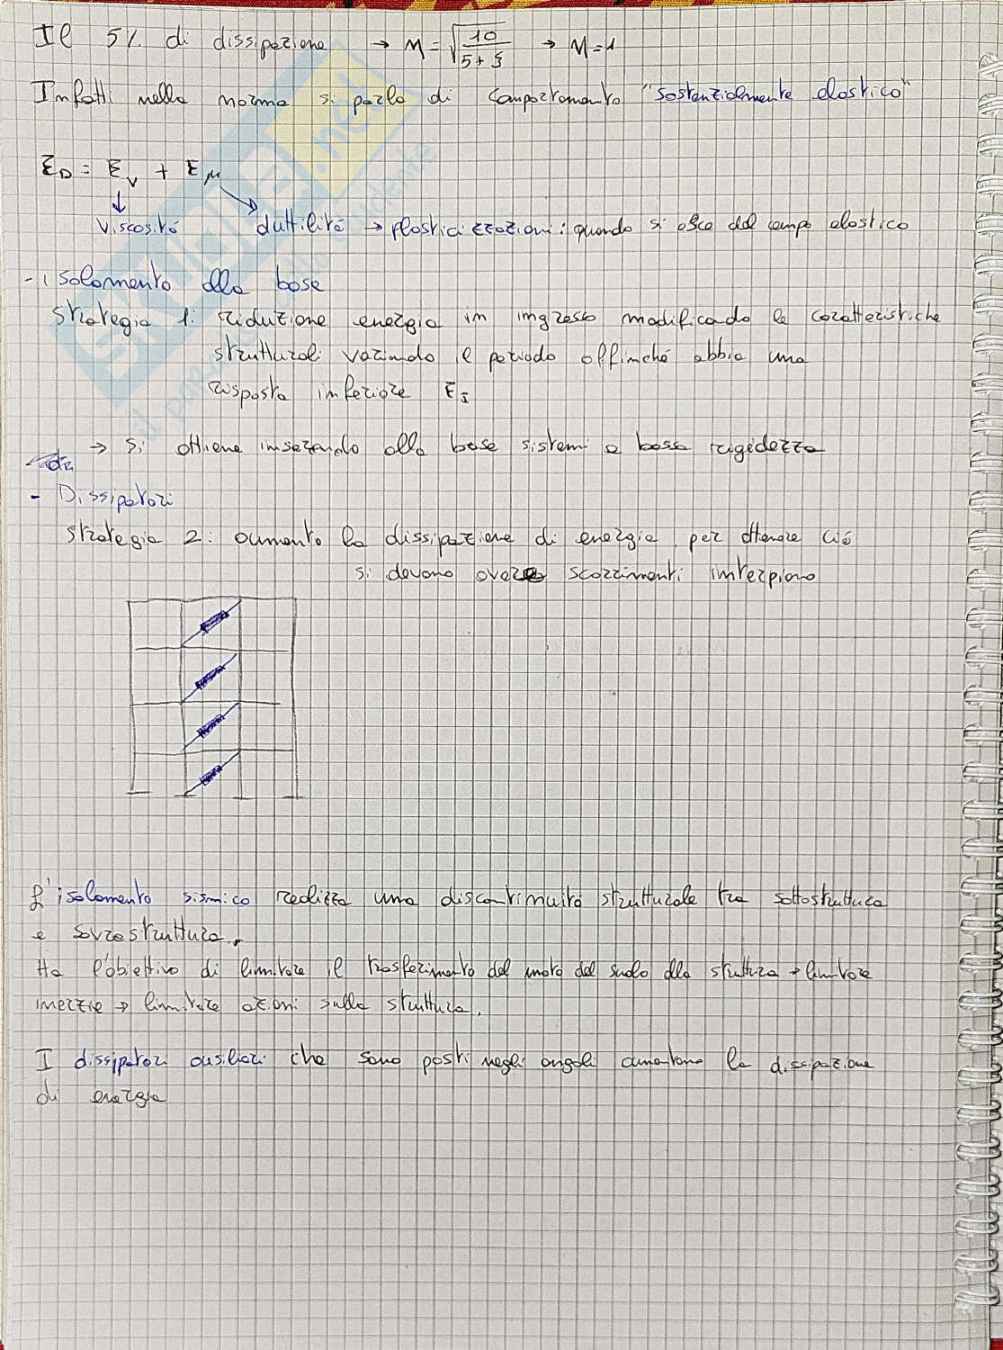 Il 5% di dissipazione → η = √10/5+ξ → η = 1
Infatti nella norma si parla di comportamento "sostanzialmente elastico"
ED = EV + Eμ
viscosità duttilità → plasticizzazioni: quando si esce dal campo elastico
- isolamento alla base
strategia 1: riduzione energia in ingresso modificando le caratteristiche
strutturali variando il periodo affinché abbia una
risposta inferiore EI
→ si ottiene inserendo alla base sistemi a bassa rigidezza
- Dissipatori
strategia 2: aumento la dissipazione di energia, per ottenere ciò
si devono avere scorrimenti interpiano
L'isolamento sismico realizza una discontinuità strutturale tra sottostruttura
e sovrastruttura.
Ha l'obiettivo di limitare il trasferimento del moto del suolo alla struttura → limitare
inerzie → limitare azioni sulla struttura.
I dissipatori ausiliari che sono posti negli angoli aumentano la dissipazione
di energia